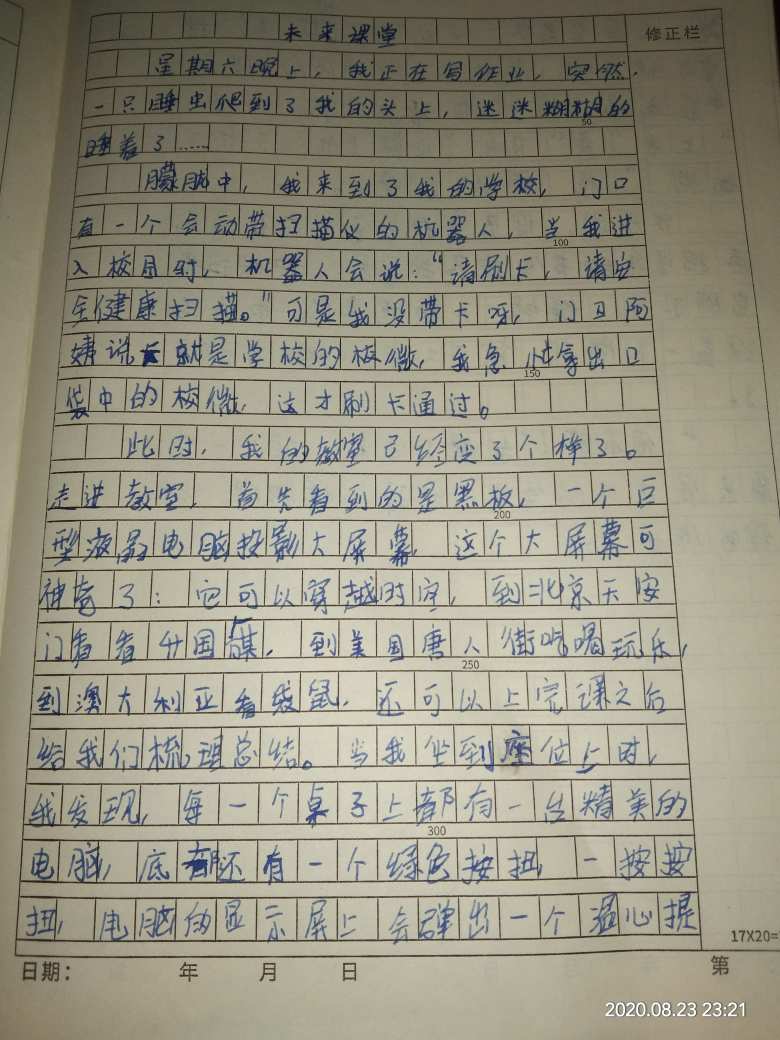 未来课堂
修正栏
星期六晚上，我正在写作业，突然，
一只睡虫爬到了我的头上，迷迷糊糊的
50
睡着了……
朦胧中，我来到了我的学校，门口
有一个会动带扫描仪的机器人，当我进
100
入校门时，机器人会说：“请刷卡，请安
全健康扫描。”可是我没带卡呀，门卫阿
姨说就是学校的校徽，我急忙拿出口
150
袋中的校徽，这才刷卡通过。
此时，我的教室已经变了个样了。
走进教室，首先看到的是黑板，一个巨
200
型液晶电脑投影大屏幕，这个大屏幕可
神奇了：它可以穿越时空，到北京天安
门看看升国旗，到美国唐人街吃喝玩乐，
250
到澳大利亚看袋鼠，还可以上完课之后
给我们梳理总结。当我坐到座位上时，
我发现，每一个桌子上都有一台精美的
300
电脑，底还有一个绿色按扭，一按按
扭，电脑的显示屏上会弹出一个温心提
17X20=
日期： 年 月 日 第
2020.08.23 23:21